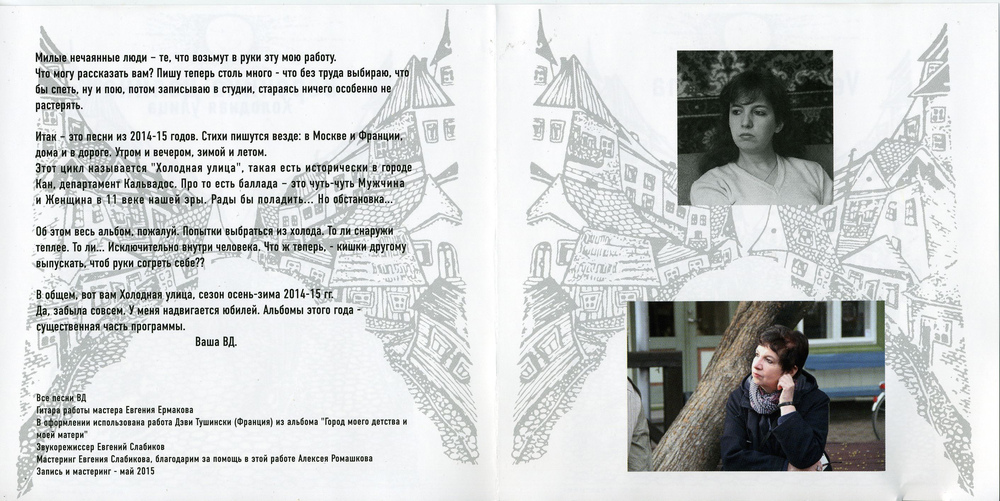 Милые нечаянные люди – те, что возьмут в руки эту мою работу.
Что могу рассказать вам? Пишу теперь столь много - что без труда выбираю, что
бы спеть, ну и пою, потом записываю в студии, стараясь ничего особенно не
растерять.
Итак – это песни из 2014-15 годов. Стихи пишутся везде: в Москве и Франции,
дома и в дороге. Утром и вечером, зимой и летом.
Этот цикл называется "Холодная улица", такая есть исторически в городе
Кан, департамент Кальвадос. Про то есть баллада – это чуть-чуть Мужчина
и Женщина в 11 веке нашей эры. Рады бы поладить... Но обстановка...
Об этом весь альбом, пожалуй. Попытки выбраться из холода. То ли снаружи
теплее. То ли... Исключительно внутри человека. Что ж теперь, - кишки другому
выпускать, чтоб руки согреть себе??
В общем, вот вам Холодная улица, сезон осень-зима 2014-15 гг.
Да, забыла совсем. У меня надвигается юбилей. Альбомы этого года -
существенная часть программы.
Ваша ВД.
Все песни ВД
Гитара работы мастера Евгения Ермакова
В оформлении использована работа Дэви Тушински (Франция) из альбома "Город моего детства и
моей матери"
Звукорежиссер Евгений Слабиков
Мастеринг Евгения Слабикова, благодарим за помощь в этой работе Алексея Ромашкова
Запись и мастеринг - май 2015